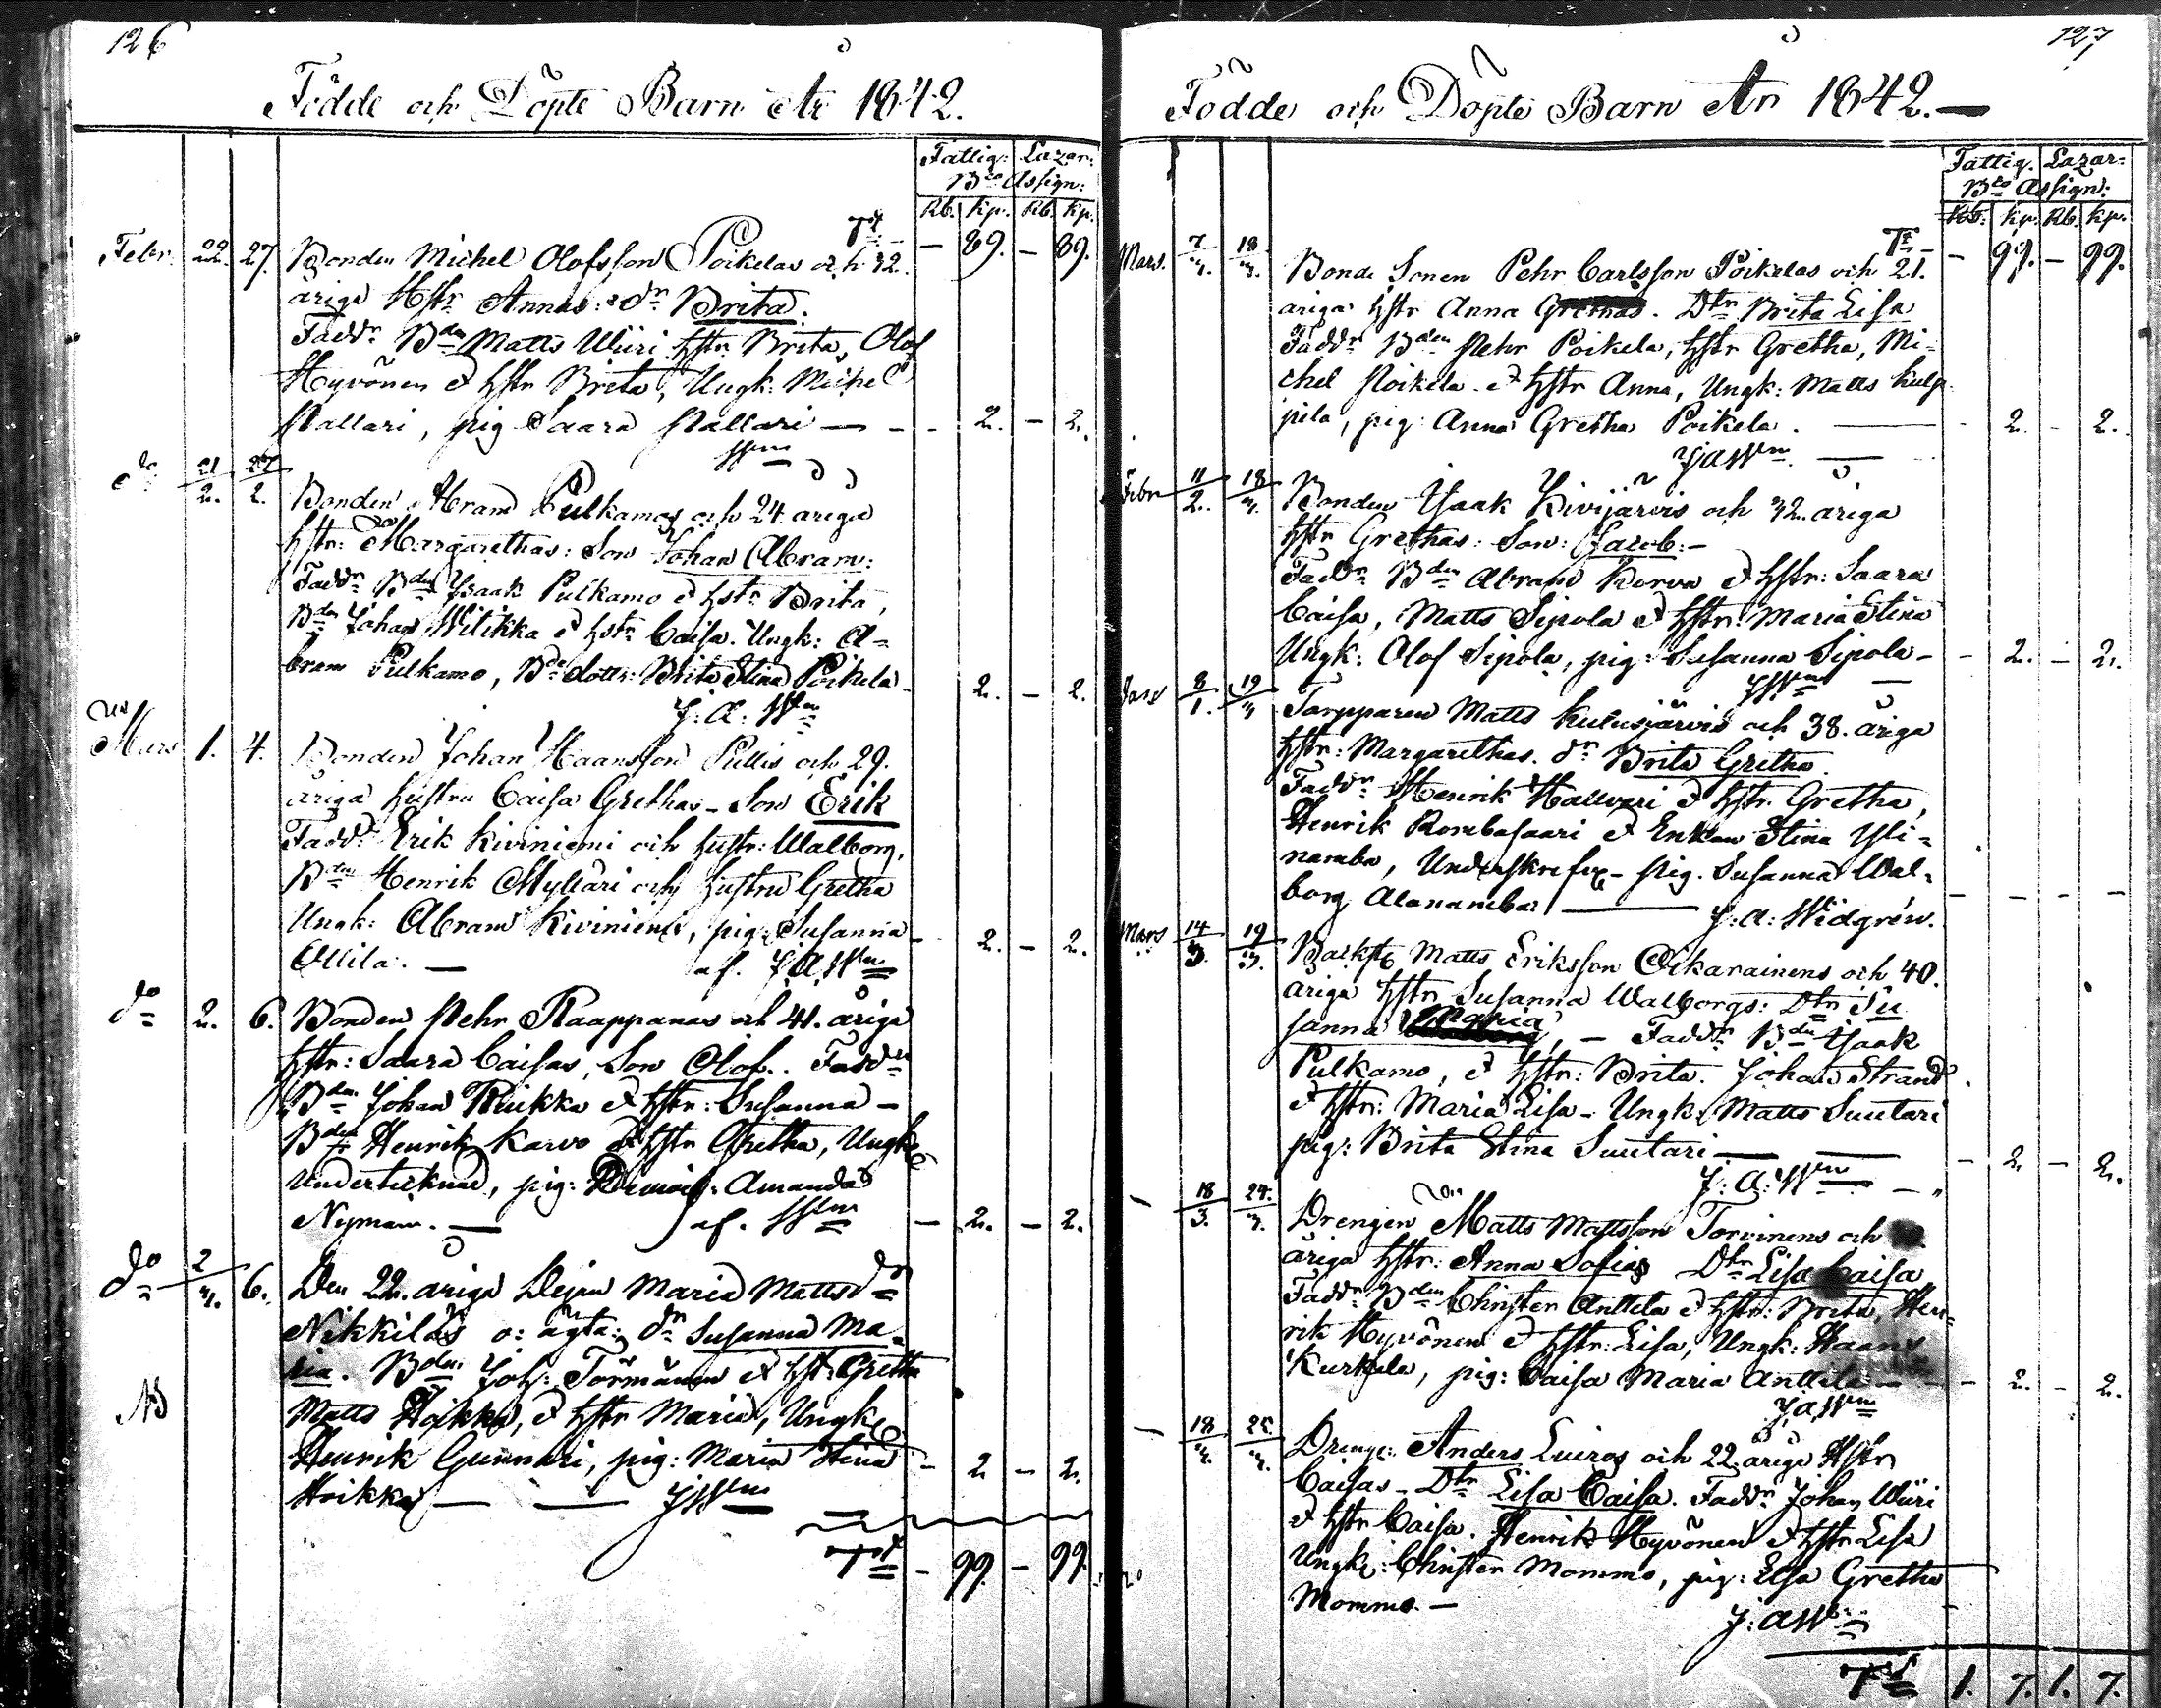 126
Födde och Döpte Barn År 1842.
Fattig: Lazar:
Bco Assign:
Rb. Kp. Rb. Kp.
Tt - 89. - 89.
Febr. 22. 27. Bonden Michel Olofsson Poikelas och 32.
åriga Hstr Annas: dr Brita.
Faddr Bden Matts Wiiri hstr Brita, Olof
Hyvönen & hstr Brita, Ungk: Michel
Pallari, pig Saara Pallari - - 2. - 2.
do 21/2. 27/2. Bonden Abram Pulkamos och 24. åriga
hstr: Margarethas: Son Johan Abram:
Faddr Bden Isaak Pulkamo & hstr Brita,
Bden Johan Wilikka & hstr Caisa. Ungk: A=
bram Pulkamo, Bde dottr: Brita Stina Poikela - 2. - 2.
J: A: Wn
Mars 1. 4. Bonden Johan Haansson Pullis och 29.
åriga hustru Caisa Grethas - Son Erik
Faddr Erik Kiviniemi och hustr: Walborg,
Bden Henrik Myllari och hustru Gretha
Ungk: Abram Kiviniemi, pig: Susanna - 2. - 2.
Ollila. - af. J A Wn
do 2. 6. Bonden Pehr Raappanas och 41. åriga
hstr: Saara Caisas, Son Olof. Faddr
Bden Johan Ruikka & hstr: Susanna -
Bden Henrik Karvo & hstr Gretha, Ungk:
Undertecknad, pig: Amanda
Nyman. - af. - 2. - 2.
do 2/3. 6. Den 22. åriga Dejan Maria Mattsdr
Nikkiläs o: ägta: dr Susanna Ma-
ria. Bden Joh: Törmänen & hst: Gretha
Matts Hoikka, & hstr Maria, Ungk:
NB
Henrik Gunnari, pig: Maria Stina - 2 - 2.
Hoikka
Tt - 99. - 99.
127
Födde och Döpte Barn År 1842. -
Fattig. Lazar:
Bco Assign:
Rb. Kp. Rb. Kp.
Tt - 99. - 99.
Mars. 7/3. 18/3. Bonde Sonen Pehr Carlsson Poikelas och 21.
åriga hstr Anna Grethas. Dtr Brita Lisa
Faddr Bden Pehr Poikela, hstr Gretha, Mi-
chel Poikela & hstr Anna, Ungk: Matts Kulp-
pila, pig: Anna Gretha Poikela. - 2. - 2.
J A Wn.
Febr 11/2. 18/3. Bonden Isaak Kivijärvis och 32. åriga
hstr Grethas: Son: Jacob: -
Faddr Bden Abram Korva & hstr: Saara
Caisa, Matts Sipola & hstr: Maria Stina
Ungk: Olof Sipola, pig: Susanna Sipola - - 2. - 2.
Jan 8/1. 19/3 Torpparen Matts Kulusjärvis och 38. åriga
hstr: Margarethas. dr Brita Gretha.
Faddr Henrik Hallvari & hstr. Gretha,
Henrik Rombasaari & Enkan Stina Yli=
namba, Underskrifvr - pig. Susanna Wal-
borg Alanamba - - - -
J: A: Widgrén.
Mars 14/3. 19/3. Backst: Matts Eriksson Oikarainens och 40.
åriga hstr Susanna Walborgs: Dtr Su
sanna Maria, - Faddr Bden Isaak
Pulkamo, & hstr: Brita. Johan Strand
& hstr: Maria Lisa - Ungk: Matts Suutari
pig: Brita Stina Suutari - - 2. - 2.
J: A: Wn
- 18/3. 24/3. Drengen Matts Mattsson Torvinens och
åriga hstr: Anna Sofias Dtr Lisa Caisa
Faddr Bden Christer Anttila & hstr: Brita, Hen=
rik Hyvönen & hstr: Lisa, Ungk: Haans
Kurkela, pig: Caisa Maria Anttila - - 2. - 2.
J A Wn
- 18/3. 25/3. Dreng: Anders Luiros och 22. åriga Hstr
Caisas - Dtr Lisa Caisa. Faddr Johan Wiiri
& hstr Caisa. Henrik Hyvönen & hstr Lisa
Ungk: Christer Mommo, pig: Elsa Gretha
Mommo. -
J: A W:
Tt 1. 7. 1. 7.